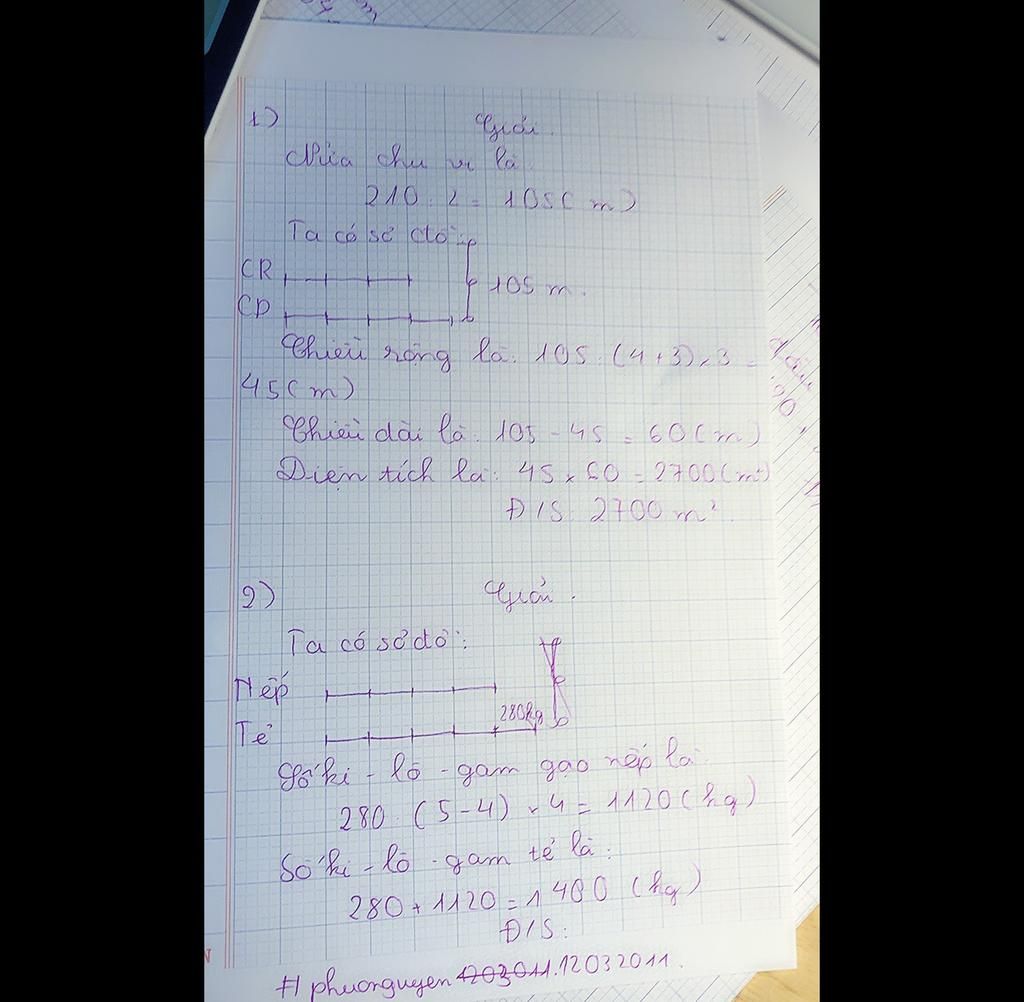 1) Giải.
Nửa chu vi là.
210 : 2 = 105( m)
Ta có sơ đồ :
CR
105 m.
CD
Chiều rộng là. 105 : (4+3) x 3 =
45( m)
Chiều dài là. 105 - 45 = 60( m)
Diện tích là: 45 x 60 = 2700( m²)
Đ/S: 2700 m².
2) Giải.
Ta có sơ đồ :
Nếp
280kg
Tẻ
Số ki - lô - gam gạo nếp là
280 : (5-4) x 4 = 1120( kg)
Số ki - lô - gam tẻ là :
280 + 1120 = 1400 (kg)
Đ/S :
# phuonguyen 1203011.12032011.